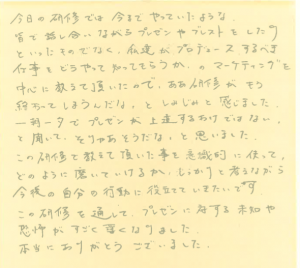 今日の研修では今までやっていたような、
皆で話し合いながらプレゼンやブレストをしたり
といったものでなく、私達がプロデュースするべき
仕事をどうやって知ってもらうか、のマーケティングを
中心に教えて頂いたので、ああ研修がもう
終わってしまうんだな、としみじみと感じました。
一朝一夕でプレゼンが上達するわけではない、
と聞いて、そりゃあそうだな、と思いました。
この研修で教えて頂いた事を意識的に使って、
どのように磨いていけるか、しっかりと考えながら
今後の自分の行動に役立てていきたいです。
この研修を通して、プレゼンに対する未知や
恐怖がすごく薄くなりました。
本当にありがとうございました。